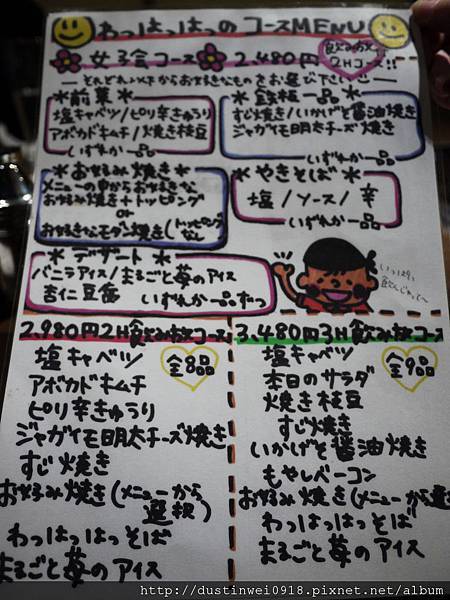 わっはっはっのコースMENU
女子会コース 2,480円 飲み放
2Hコース!!
それぞれ以下からお好きなものをお選び下さい
*前菜*
塩キャベツ/ピリ辛きゅうり
アボカドキムチ/焼き枝豆
いずれか一品
*鉄板一品*
すじ焼き/いかげそ醤油焼き
ジャガイモ明太チーズ焼き
いずれか一品
*お好み焼き*
メニューの中からお好きな
お好み焼き+トッピング
or
お好きなモダン焼き(トッピングなし
*やきそば*
塩/ソース/辛
いずれか一品
*デザート*
バニラアイス/まるごと苺のアイス
杏仁豆腐 いずれか一品ずつ
いっぱい
飲んじゃって〜
2,980円2H飲み放コース
全8品
塩キャベツ
アボカドキムチ
ピリ辛きゅうり
ジャガイモ明太チーズ焼き
すじ焼き
お好み焼き(メニューから
選択)
わっはっはっそば
まるごと苺のアイス
3,480円3H飲み放コース
全9品
塩キャベツ
本日のサラダ
焼き枝豆
すじ焼き
いかげそ醤油焼き
もやしベーコン
お好み焼き(メニューから選
わっはっはっそば
まるごと苺のアイス
http://dustinwei0918.pixnet.net/album